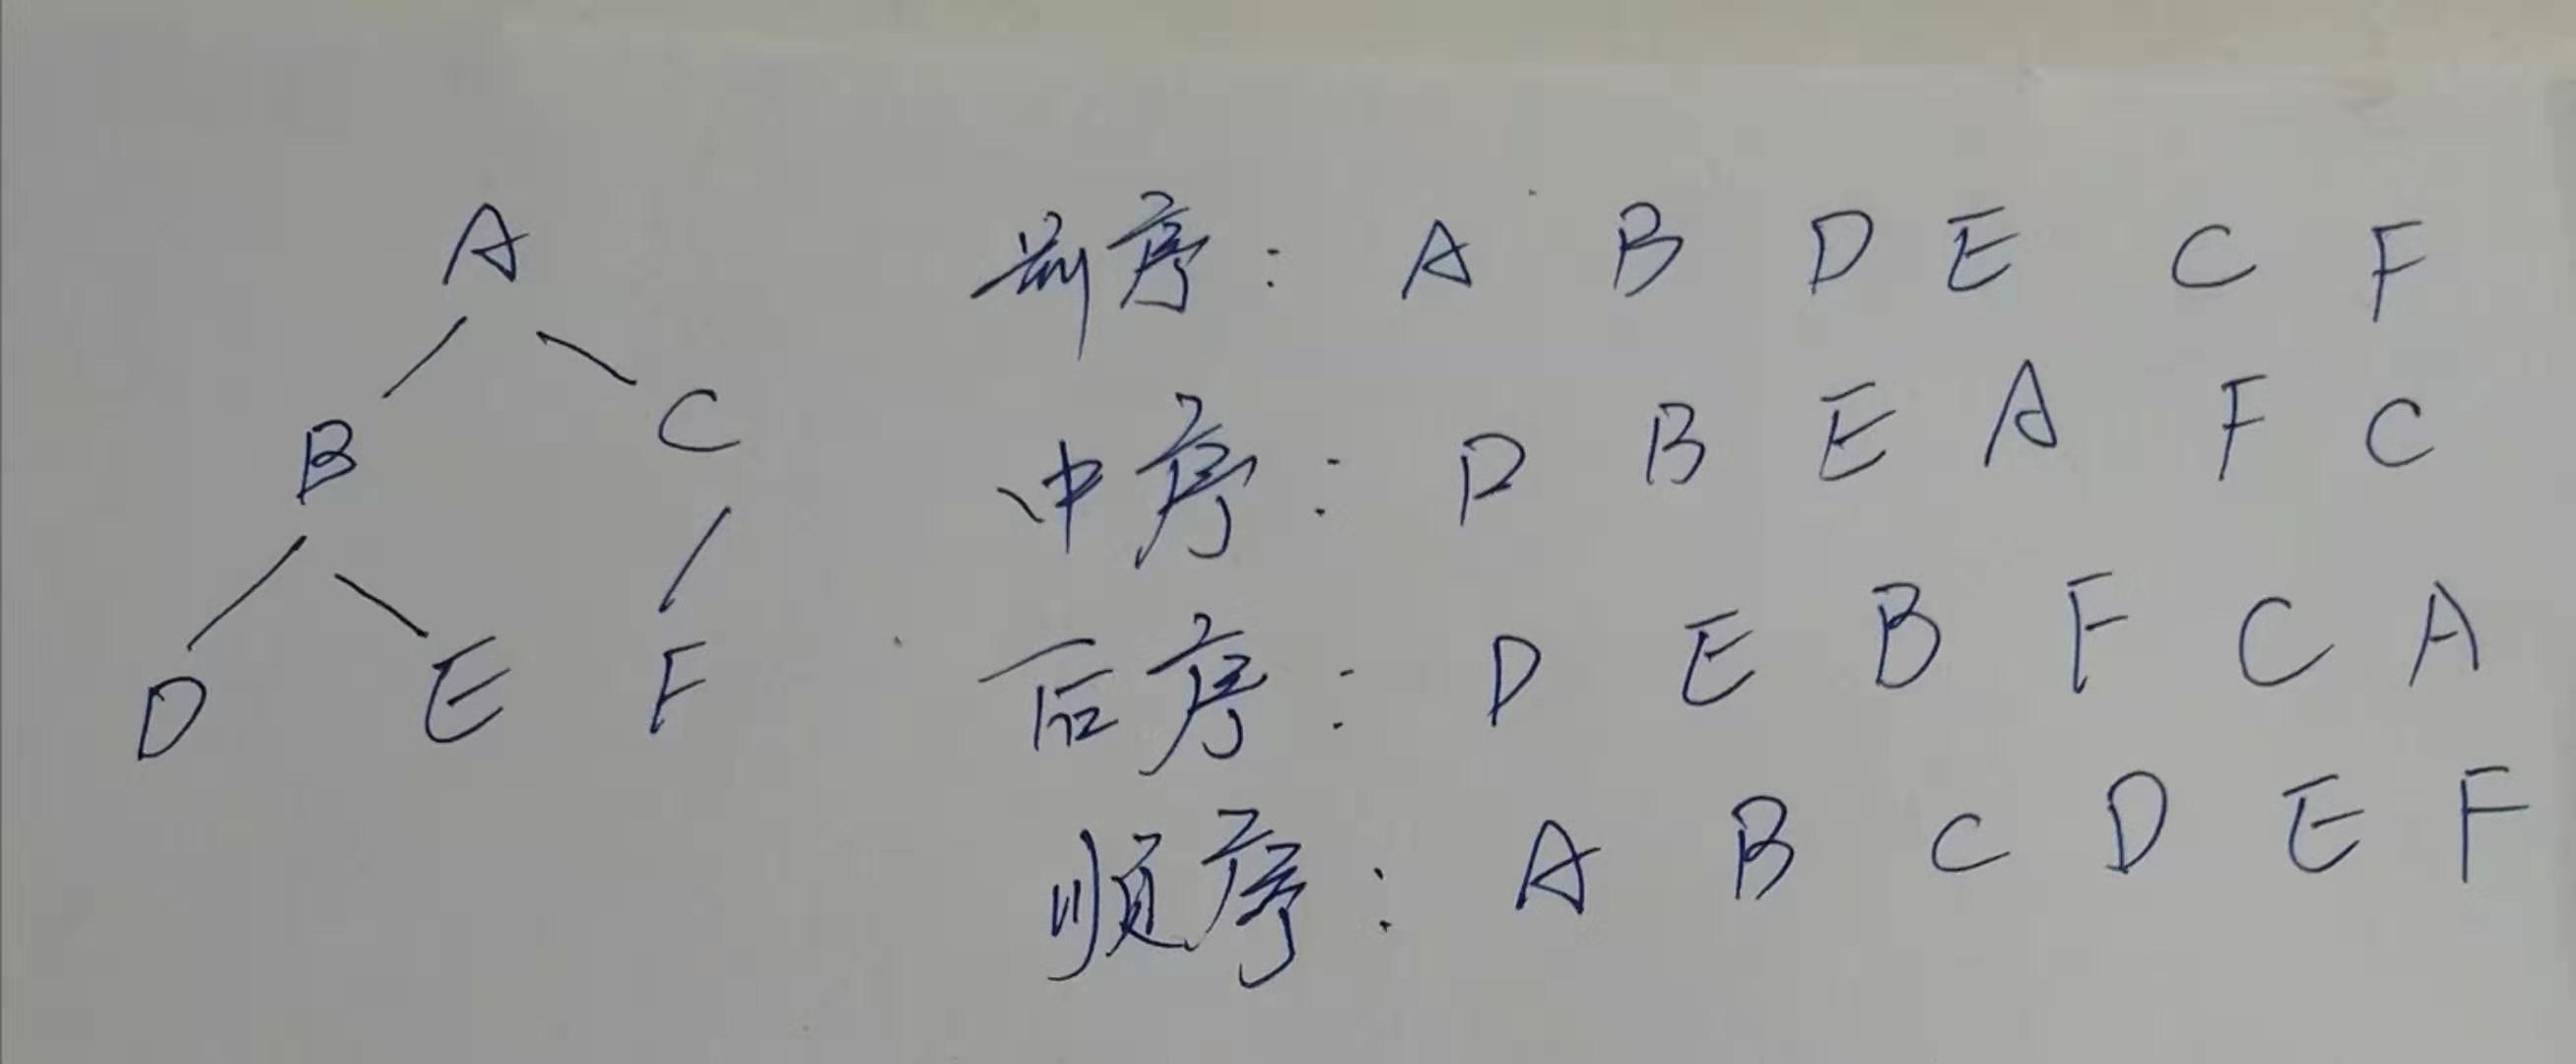 A
B C
D E F
前序: A B D E C F
中序: D B E A F C
后序: D E B F C A
顺序: A B C D E F